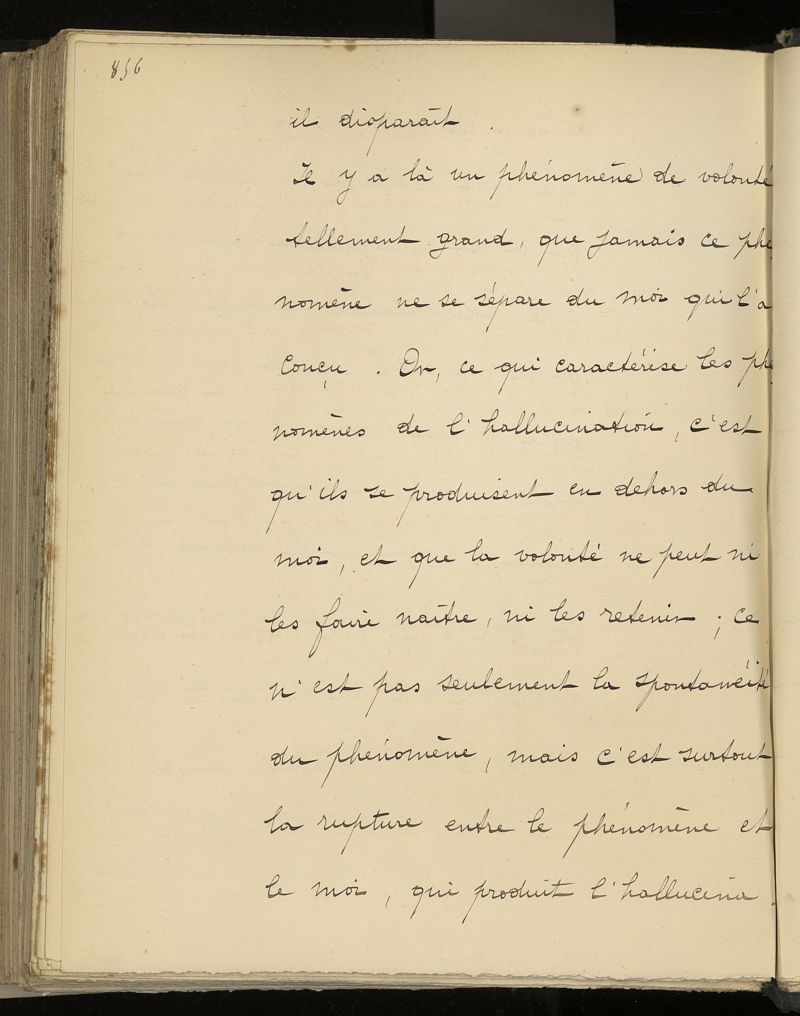 856
il disparaît.
Il y a là un phénomène de volonté
tellement grand, que jamais ce phé
nomène ne se sépare du moi qui l'a
conçu. Or, ce qui caractérise les phé
nomènes de l'hallucination, c'est
qu'ils se produisent en dehors du
moi, et que la volonté ne peut ni
les faire naître, ni les retenir; ce
n'est pas seulement la spontanéité
du phénomène, mais c'est surtout
la rupture entre le phénomène et
le moi, qui produit l'hallucina